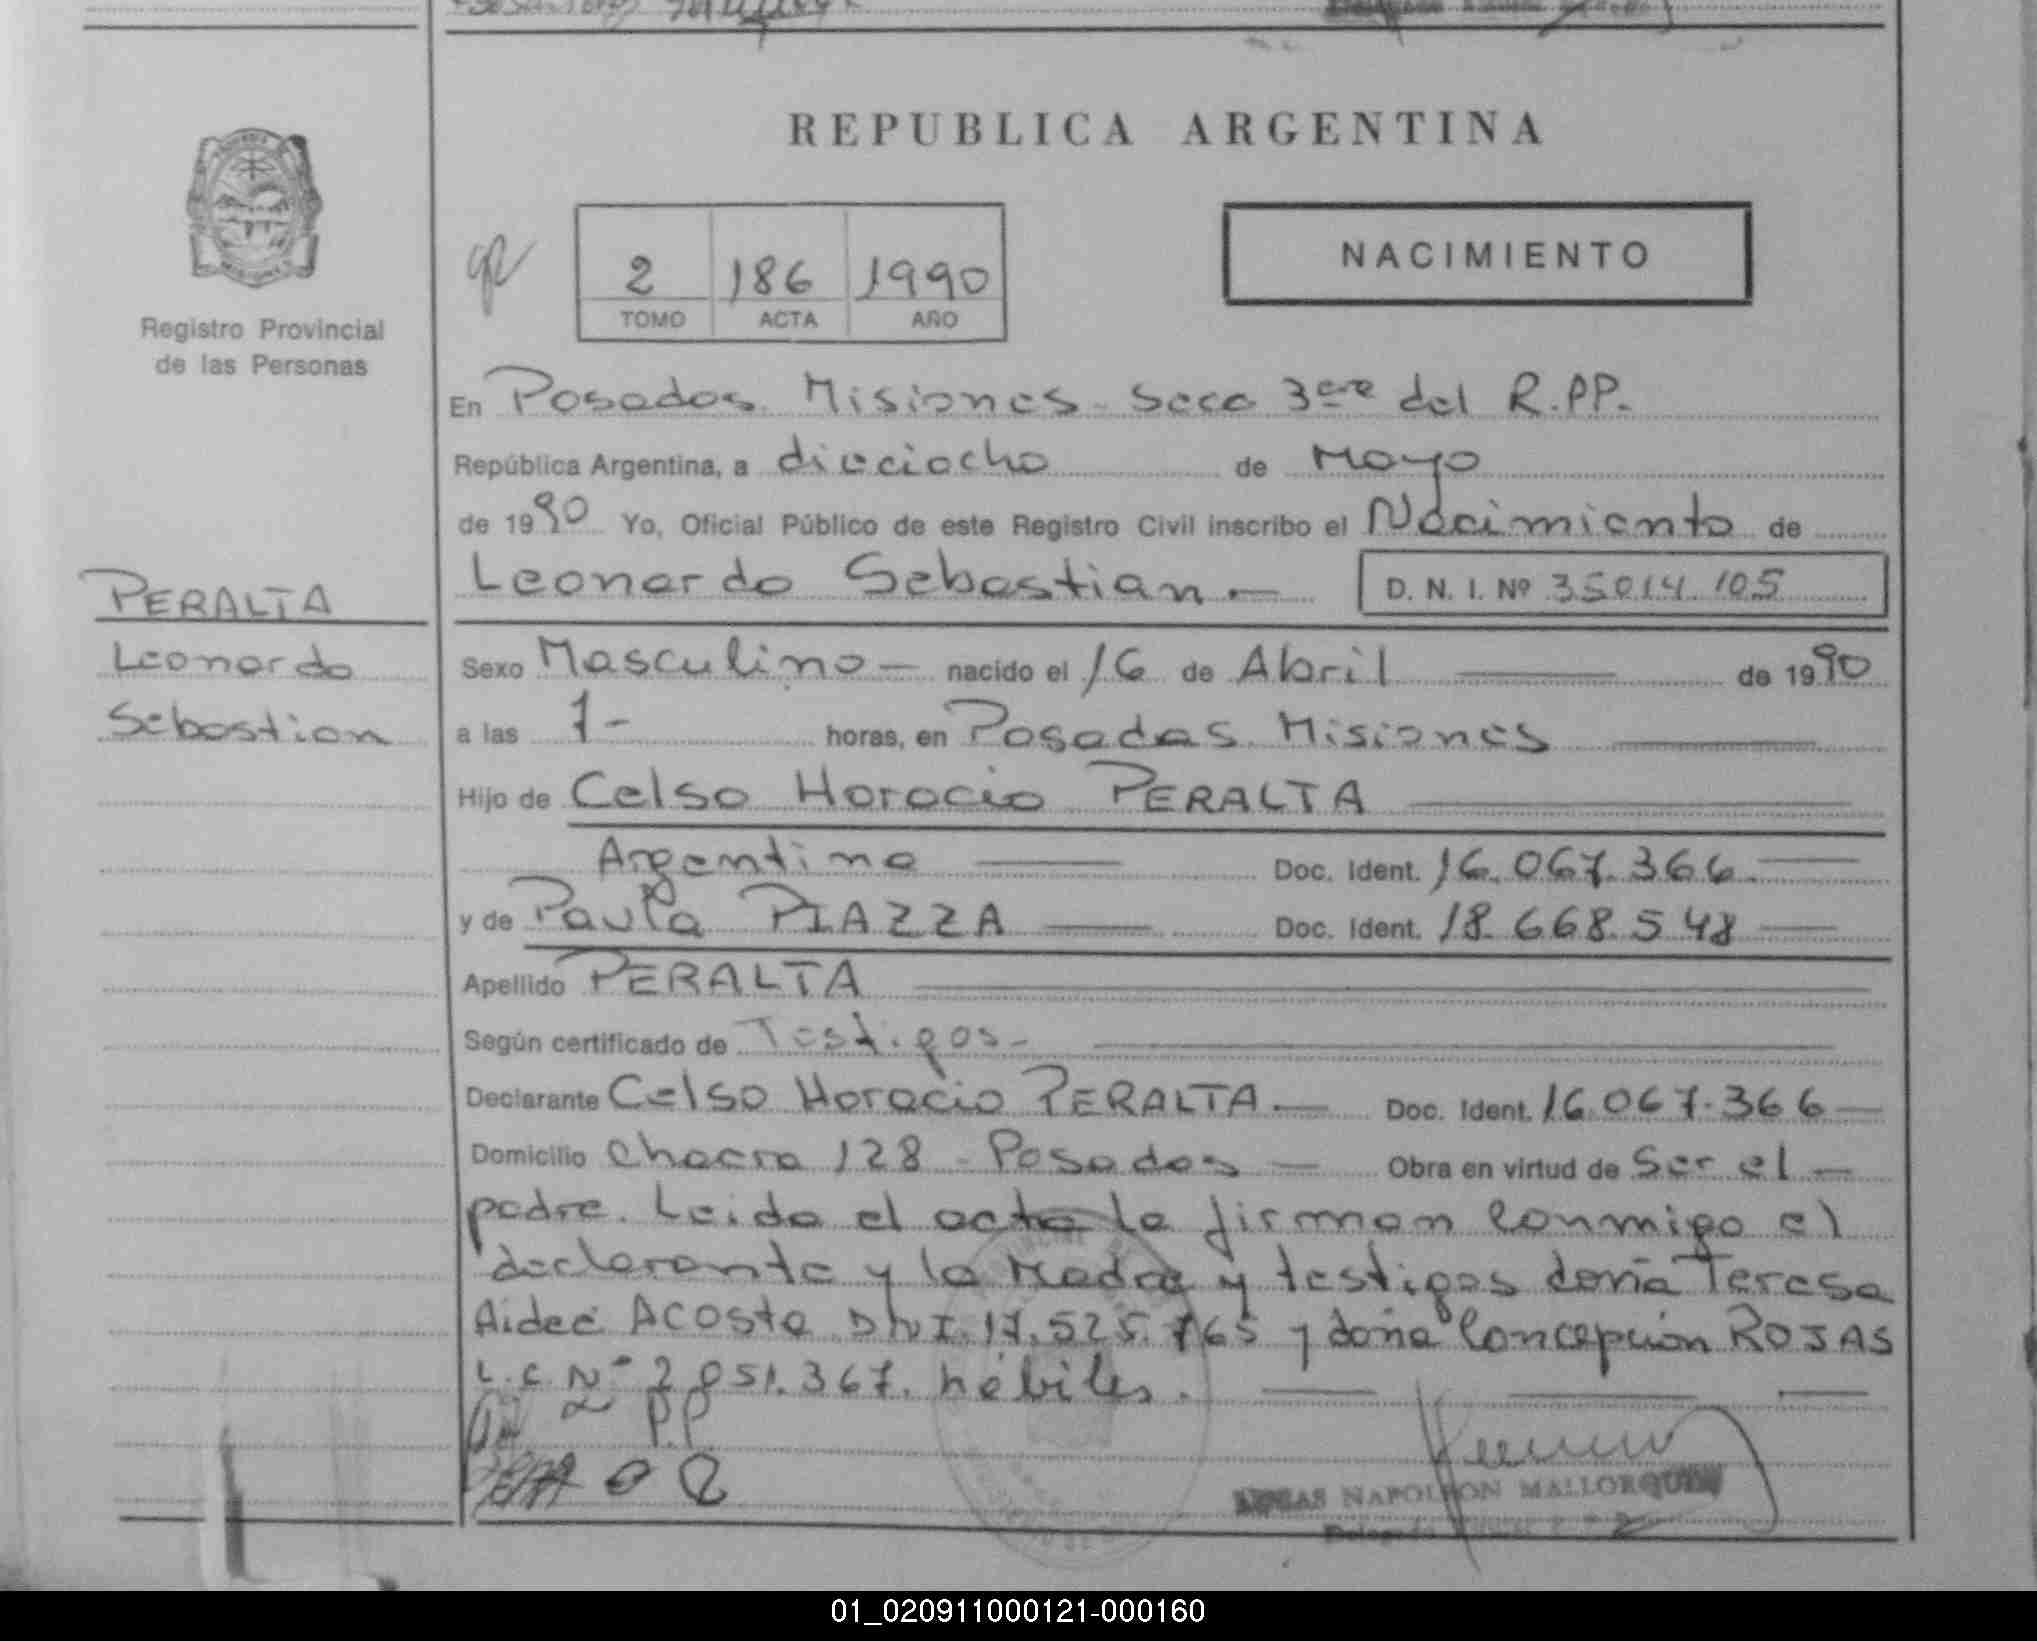 REPUBLICA ARGENTINA
2 186 1990
TOMO ACTA AÑO
NACIMIENTO
Registro Provincial
de las Personas
En Posadas Misiones - Secc 3era del R.PP.
República Argentina, a dieciocho de Mayo
de 1990 Yo, Oficial Público de este Registro Civil inscribo el Nacimiento de
Leonardo Sebastian.- D. N. I. Nº 35014.105
PERALTA
Leonardo
Sebastian
Sexo Masculino - nacido el 16 de Abril de 1990
a las 1- horas, en Posadas Misiones
Hijo de Celso Horacio PERALTA
Argentino Doc. Ident. 16.067.366.
y de Paula PIAZZA Doc. Ident. 18.668.548
Apellido PERALTA
Según certificado de Testigos-
Declarante Celso Horacio PERALTA.- Doc. Ident. 16.067.366
Domicilio Chacra 128 - Posadas - Obra en virtud de Ser el -
padre. Leida el acta la firman conmigo el
declarante y la Madre y testigos doña Teresa
Aideé ACOSTA DNI. 17.525.765 y doña Concepción ROJAS
L.C. Nº 2.851.367. hábiles.
P.P
NAPOLEON MALLORQUIN
01_020911000121-000160